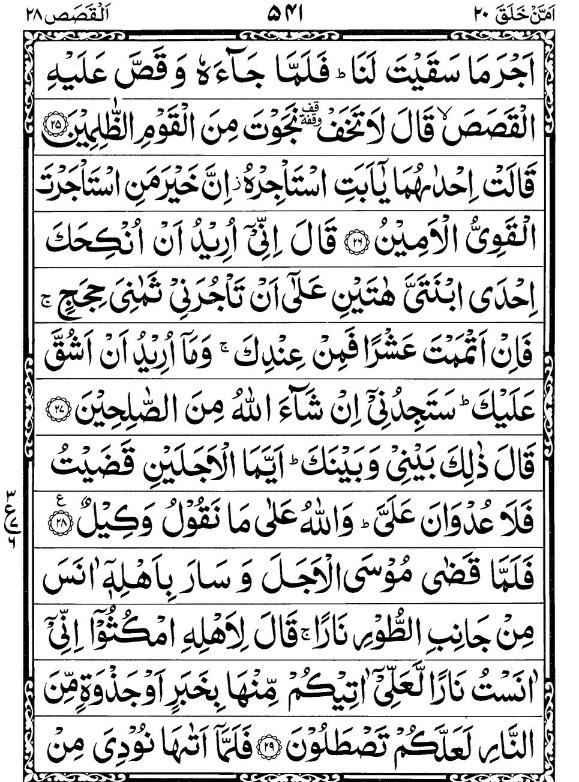 اَمَّنۡ خَلَقَ ٢٠ ۵۴۱ اَلۡقَصَص ٢٨
اَجۡرَ مَا سَقَيۡتَ لَنَا ؕ فَلَمَّا جَآءَهٗ وَ قَصَّ عَلَيۡهِ
الۡقَصَصَ ۙ قَالَ لَا تَخَفۡ ۥقف وقفة نَجَوۡتَ مِنَ الۡقَوۡمِ الظّٰلِمِيۡنَ ﴿۲۵﴾
قَالَتۡ اِحۡدٰٮهُمَا يٰۤاَبَتِ اسۡتَاۡجِرۡهُ ۫ اِنَّ خَيۡرَ مَنِ اسۡتَاۡجَرۡتَ
الۡقَوِىُّ الۡاَمِيۡنُ ﴿۲۶﴾ قَالَ اِنِّىۡۤ اُرِيۡدُ اَنۡ اُنۡكِحَكَ
اِحۡدَى ابۡنَتَىَّ هٰتَيۡنِ عَلٰٓى اَنۡ تَاۡجُرَنِىۡ ثَمٰنِىَ حِجَجٍ ۚ
فَاِنۡ اَتۡمَمۡتَ عَشۡرًا فَمِنۡ عِنۡدِكَ ۚ وَمَاۤ اُرِيۡدُ اَنۡ اَشُقَّ
عَلَيۡكَ ؕ سَتَجِدُنِىۡۤ اِنۡ شَآءَ اللّٰهُ مِنَ الصّٰلِحِيۡنَ ﴿۲۷﴾
قَالَ ذٰلِكَ بَيۡنِىۡ وَ بَيۡنَكَ ؕ اَيَّمَا الۡاَجَلَيۡنِ قَضَيۡتُ
فَلَا عُدۡوَانَ عَلَىَّ ؕ وَاللّٰهُ عَلٰى مَا نَقُوۡلُ وَكِيۡلٌ ﴿۲۸﴾ ع
٣ ع ٧ ٦
فَلَمَّا قَضٰى مُوۡسَى الۡاَجَلَ وَ سَارَ بِاَهۡلِهٖۤ اٰنَسَ
مِنۡ جَانِبِ الطُّوۡرِ نَارًا ۚ قَالَ لِاَهۡلِهِ امۡكُثُوۡۤا اِنِّىۡۤ
اٰنَسۡتُ نَارًا لَّعَلِّىۡۤ اٰتِيۡكُمۡ مِّنۡهَا بِخَبَرٍ اَوۡ جَذۡوَةٍ مِّنَ
النَّارِ لَعَلَّكُمۡ تَصۡطَلُوۡنَ ﴿۲۹﴾ فَلَمَّاۤ اَتٰٮهَا نُوۡدِىَ مِنۡ